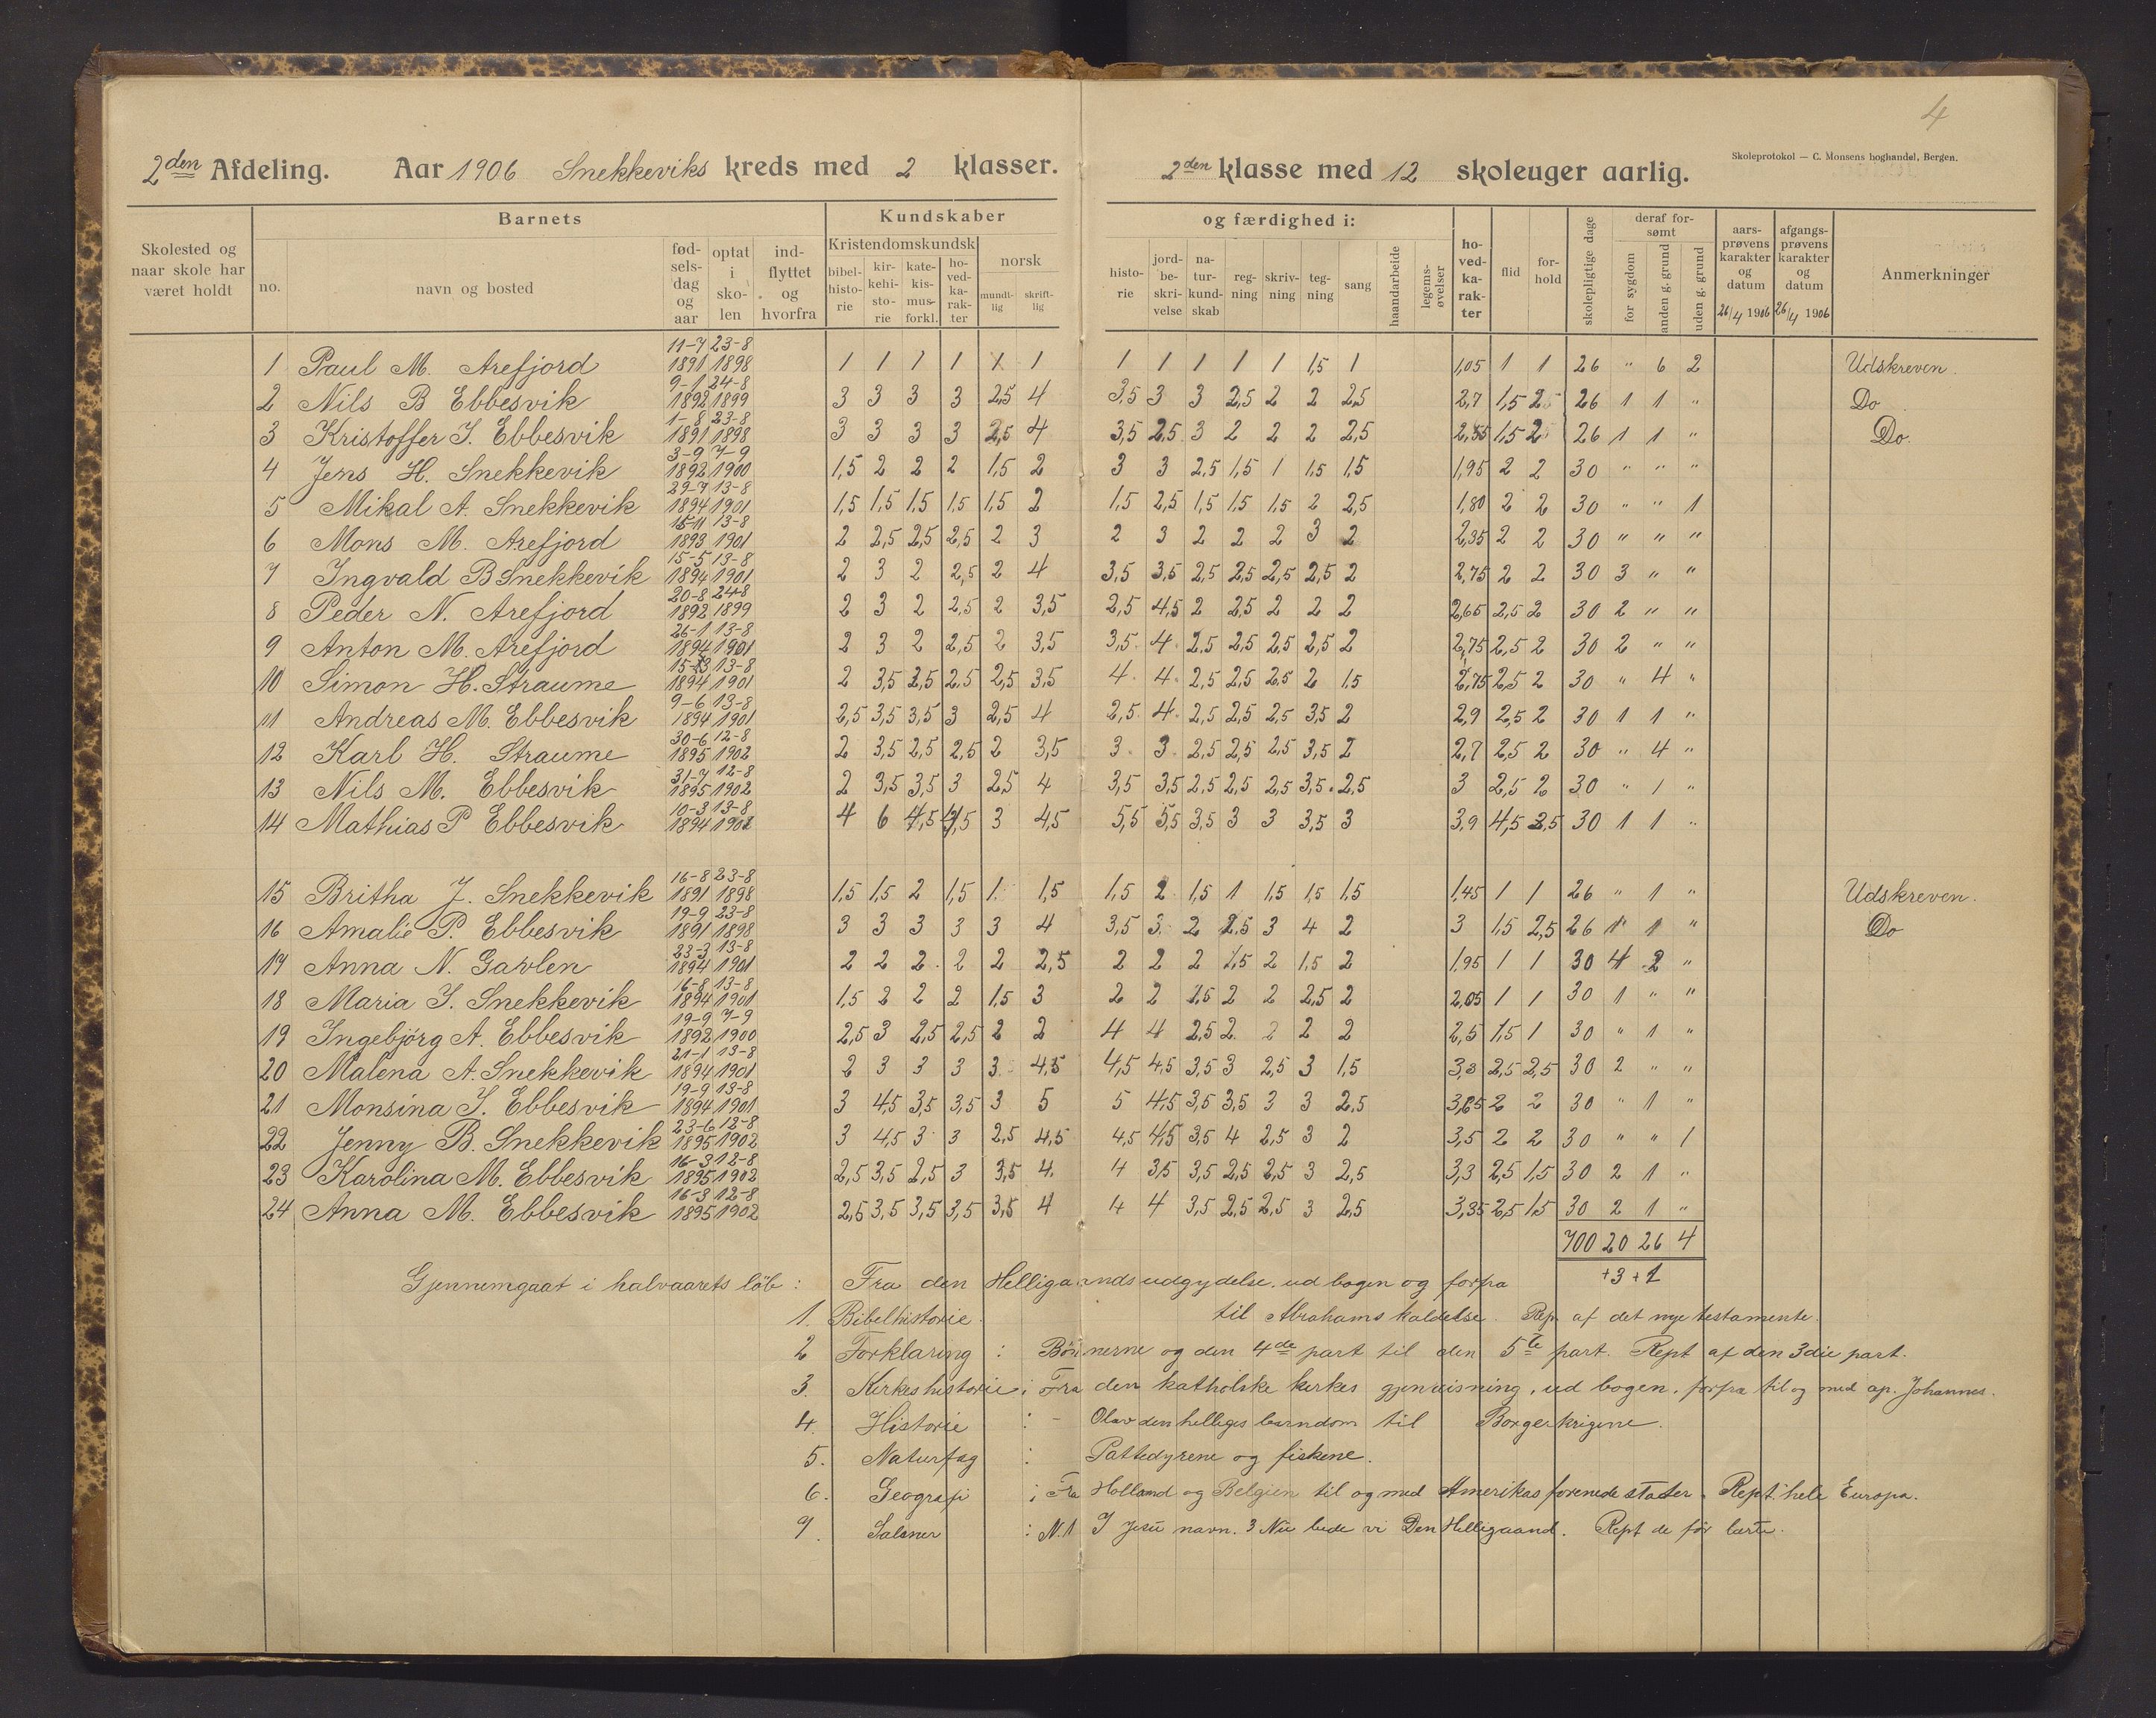 4
2den Afdeling. Aar 1906 Snekkeviks kreds med 2 klasser. 2den klasse med 12 skoleuger aarlig.
Skoleprotokol — C. Monsens boghandel, Bergen.
Skolested og naar skole har været holdt
Barnets
no.
navn og bosted
fødselsdag og aar
optat i skolen
indflyttet og hvorfra
Kundskaber og færdighed i:
Kristendomskundsk
bibelhistorie
kirkehistorie
katekismus forkl.
hovedkarakter
norsk
mundtlig
skriftlig
historie
jordbeskrivelse
naturkundskab
regning
skrivning
tegning
sang
haandarbeide
legemsøvelser
hovedkarakter
flid
forhold
skolepligtige dage
deraf forsømt
for sygdom
anden g. grund
uden g. grund
aarsprøvens karakter og datum 26/4 1906
afgangsprøvens karakter og datum 26/4 1906
Anmerkninger
1 Paul M. Arefjord 11-7 1891 23-8 1898 1 1 1 1 1 1 1 1 1 1 1 1,5 1 1,05 1 1 26 " 6 2 Udskreven.
2 Nils B Ebbesvik 9-1 1892 24-8 1899 3 3 3 3 2,5 4 3,5 3 3 2,5 2 2 2,5 2,7 1,5 2,5 26 1 1 " Do
3 Kristoffer J. Ebbesvik 1-8 1891 23-8 1898 3 3 3 3 2,5 4 3,5 2,5 3 2 2 2 2,5 2,55 1,5 2 26 1 1 " Do.
4 Jens H. Snekkevik 3-9 1892 7-9 1900 1,5 2 2 2 1,5 2 3 3 2,5 1,5 1 1,5 1,5 1,95 2 2 30 " " "
5 Mikal A. Snekkevik 29-7 1894 13-8 1901 1,5 1,5 1,5 1,5 1,5 2 1,5 2,5 1,5 1,5 1,5 2 2,5 1,80 2 2 30 " " 1
6 Mons M. Arefjord 15-11 1893 13-8 1901 2 2,5 2,5 2,5 2 3 2 3 2 2 2 3 2 2,35 2 2 30 " " "
7 Ingvald B Snekkevik 15-5 1894 13-8 1901 2 3 2 2,5 2 4 3,5 3,5 2,5 2,5 2,5 2,5 2 2,75 2 2 30 3 " "
8 Peder N. Arefjord 20-8 1892 24-8 1899 2 3 2 2,5 2 3,5 2,5 4,5 2 2,5 2 2 2 2,65 2,5 2 30 2 " "
9 Anton M. Arefjord 26-1 1894 13-8 1901 2 3 2 2,5 2 3,5 3,5 4 2,5 2,5 2,5 2,5 2 2,75 2,5 2 30 2 " "
10 Simon H. Straume 1894 13-8 1901 2 3,5 2,5 2,5 2,5 3,5 4 4 2,5 2,5 2,5 2 1,5 2,75 2,5 2 30 " 4 "
11 Andreas M. Ebbesvik 9-6 1894 13-8 1901 2,5 3,5 3,5 3 2,5 4 2,5 4 2,5 2,5 2,5 3,5 2 2,9 2,5 2 30 1 1 "
12 Karl H. Straume 30-6 1895 12-8 1902 2 3,5 2,5 2,5 2 3,5 3 3 2,5 2,5 2,5 3,5 2 2,7 2,5 2 30 " 4 "
13 Nils M. Ebbesvik 31-7 1895 12-8 1902 2 3,5 3,5 3 2,5 4 3,5 3,5 2,5 2,5 2,5 3,5 2,5 3 2,5 2 30 " 1 "
14 Mathias P Ebbesvik 10-3 1894 13-8 1902 4 6 4,5 4,5 3 4,5 5,5 5,5 3,5 3 3 3,5 3 3,9 4,5 3,5 30 1 1 "
15 Britha J. Snekkevik 16-8 1891 23-8 1898 1,5 1,5 2 1,5 1 1,5 1,5 2 1,5 1 1,5 1,5 1,5 1,45 1 1 26 " 1 " Udskreven.
16 Amalie P. Ebbesvik 19-9 1891 23-8 1898 3 3 3 3 3 4 3,5 3 2 2,5 3 4 2 3 1,5 2,5 26 1 1 " Do
17 Anna N. Gavlen 23-3 1894 13-8 1901 2 2 2 2 2 2,5 2 2 2 1,5 2 1,5 2 1,95 1 1 30 4 2 "
18 Maria J. Snekkevik 16-8 1894 13-8 1901 1,5 2 2 2 1,5 3 2 2 1,5 2 2 2,5 2 2,05 1 1 30 1 " "
19 Ingebjørg A. Ebbesvik 19-9 1892 7-9 1900 2,5 3 2,5 2,5 2 2 4 4 2,5 2 2 2 2 2,5 1,5 1 30 " 1 "
20 Malena A. Snekkevik 21-1 1894 13-8 1901 2 3 3 3 3 4,5 4,5 4,5 3,5 3 2,5 3 1,5 3,3 2,5 2,5 30 2 " "
21 Monsina J. Ebbesvik 19-9 1894 13-8 1901 3 4,5 3,5 3,5 3 5 5 4,5 3,5 3,5 3 3 2,5 3,65 2 2 30 " 1 "
22 Jenny B. Snekkevik 23-6 1895 12-8 1902 3 4,5 3 3 2,5 4,5 4,5 4,5 3,5 4 2,5 3 2 3,5 2 2 30 " " 1
23 Karolina M. Ebbesvik 16-3 1895 12-8 1902 2,5 3,5 2,5 3 3,5 4 4 3,5 3,5 2,5 2,5 3 2,5 3,3 2,5 1,5 30 2 1 "
24 Anna M. Ebbesvik 16-3 1895 12-8 1902 2,5 3,5 3,5 3,5 3,5 4 4 4 3,5 2,5 2,5 3 2,5 3,35 2,5 1,5 30 2 1 "
700 20 26 4
+3 +1
Gjennemgaat i halvaarets löb: Fra den Helligaandsudgydelse ud bogen og forfra
1. Bibelhistorie. til Abrahams kaldelse. Rep. af det nye testamente.
2 Forklaring : Bönnerne og den 4de part til den 5te part. Rept af den 3die part.
3. Kirkeshistorie: Fra den katholske kirkes gjenreisning, ud bogen, forfra til og med ap. Johannes.
4. Historie : - Olav den helliges barndom til Borgerkrigene.
5. Naturfag : Pattedyrene og fiskene.
6. Geografi : Fra Holland og Belgien til og med Amerikas forenede stater. Rept. hele Europa.
7. Salmer : N.1 I Jesu navn. 3 Nu bede vi Den Helligaand. Rept de før lærte.